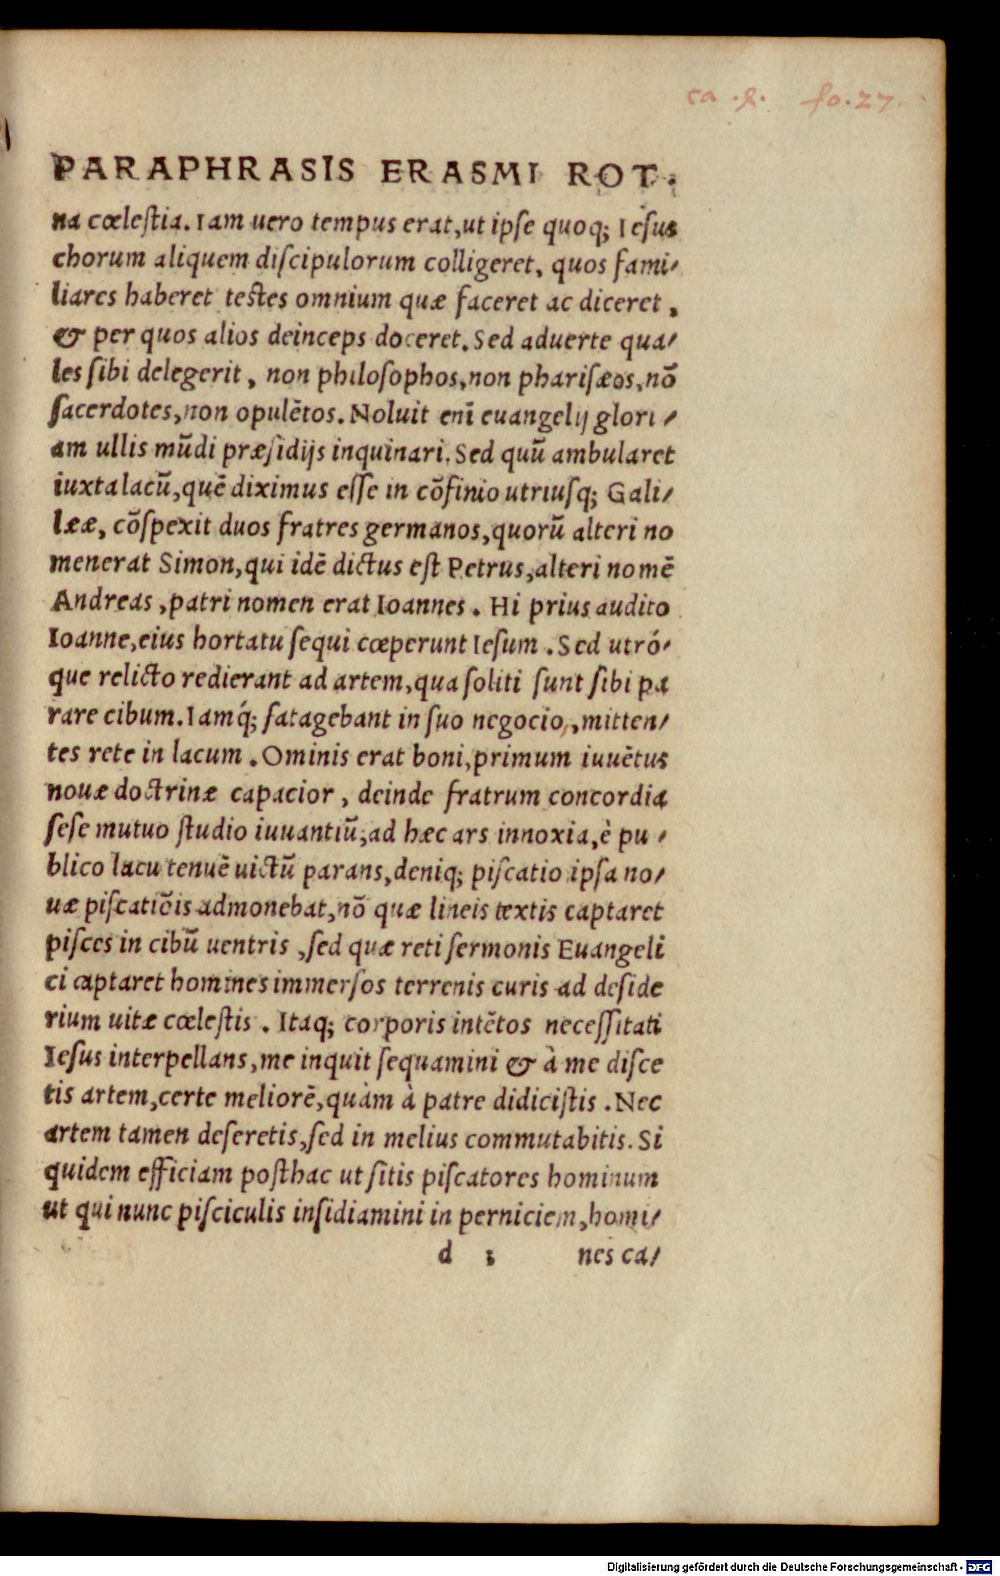 ca .8. fo.27.
PARAPHRASIS ERASMI ROT.
na cœlestia. Iam uero tempus erat, ut ipse quoq; Iesus
chorum aliquem discipulorum colligeret, quos fami/
liares haberet testes omnium quæ faceret ac diceret,
& per quos alios deinceps doceret. Sed aduerte qua/
les sibi delegerit, non philosophos, non pharisæos, nō
sacerdotes, non opulētos. Noluit enī euangelij glori/
am ullis mūdi præsidijs inquinari. Sed quū ambularet
iuxta lacū, quē diximus esse in cōfinio utriusq; Gali/
lææ, cōspexit duos fratres germanos, quorū alteri no
menerat Simon, qui idē dictus est Petrus, alteri nomē
Andreas, patri nomen erat Ioannes. Hi prius audito
Ioanne, eius hortatu sequi cœperunt Iesum. Sed utró/
que relicto redierant ad artem, qua soliti sunt sibi pa
rare cibum. Iamq́; satagebant in suo negocio, mitten/
tes rete in lacum. Ominis erat boni, primum iuuētus
nouæ doctrinæ capacior, deinde fratrum concordia
sese mutuo studio iuuantiū, ad hæc ars innoxia, è pu/
blico lacu tenuē uictū parans, deniq; piscatio ipsa no/
uæ piscatiōis admonebat, nō quæ lineis textis captaret
pisces in cibū uentris, sed quæ reti sermonis Euangeli
ci captaret homines immersos terrenis curis ad deside
rium uitæ cœlestis. Itaq; corporis intētos necessitati
Iesus interpellans, me inquit sequamini & à me disce
tis artem, certe meliorē, quàm à patre didicistis. Nec
artem tamen deseretis, sed in melius commutabitis. Si
quidem efficiam posthac ut sitis piscatores hominum
ut qui nunc pisciculis insidiamini in perniciem, homi/
d 3 nes ca/
Digitalisierung gefördert durch die Deutsche Forschungsgemeinschaft - DFG